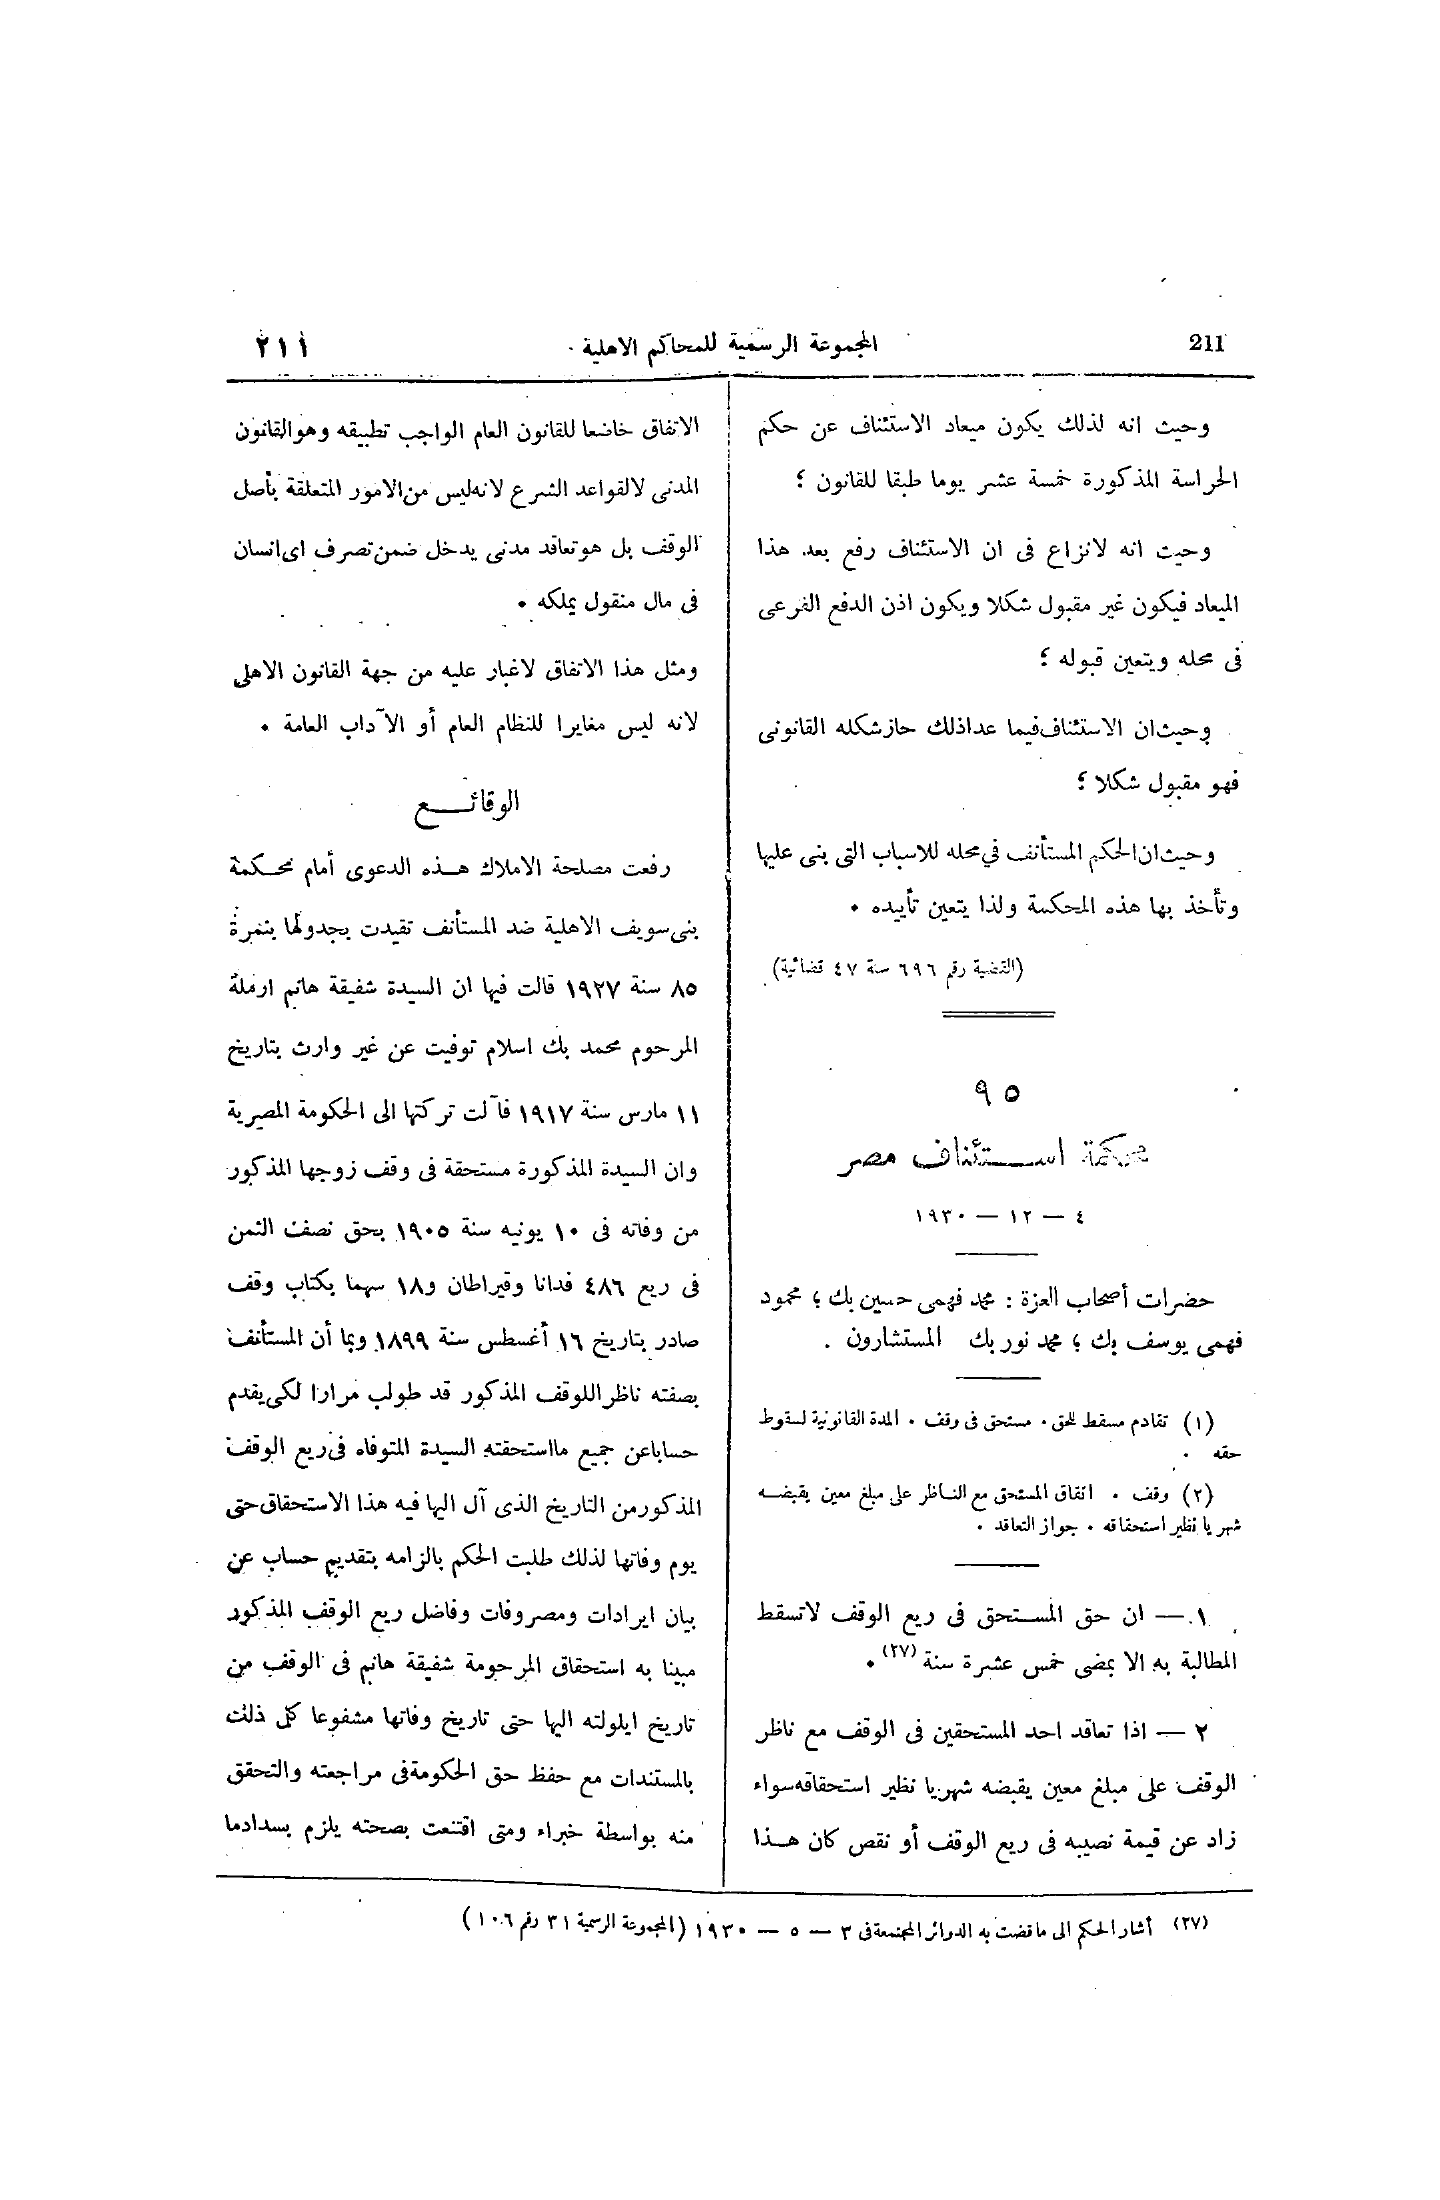 211
المجموعة الرسمية للمحاكم الاهلية
٢١١
وحيث انه لذلك يكون ميعاد الاستئناف عن حكم
الحراسة المذكورة خمسة عشر يوما طبقا للقانون ؛
وحيث انه لانزاع فى ان الاستئناف رفع بعد هذا
الميعاد فيكون غير مقبول شكلا ويكون اذن الدفع الفرعى
فى محله ويتعين قبوله ؛
وحيث ان الاستئناف فيما عدا ذلك حاز شكله القانونى
فهو مقبول شكلا ؛
وحيث ان الحكم المستأنف في محله للاسباب التى بنى عليها
وتأخذ بها هذه المحكمة ولذا يتعين تأييده .
(القضية رقم ٦٩٦ سنة ٤٧ قضائية)
٩٥
محكمة استئناف مصر
٤ — ١٢ — ١٩٣٠
حضرات أصحاب العزة : محمد فهمى حسين بك ؛ محمود
فهمى يوسف بك ؛ محمد نور بك المستشارون .
(١) تقادم مسقط للحق . مستحق فى وقف . المدة القانونية لسقوط
حقه .
(٢) وقف . اتفاق المستحق مع الناظر على مبلغ معين يقبضه
شهريا نظير استحقاقه . جواز التعاقد .
١ — ان حق المستحق فى ريع الوقف لا تسقط
المطالبة به الا بمضى خمس عشرة سنة (٢٧) .
٢ — اذا تعاقد احد المستحقين فى الوقف مع ناظر
الوقف على مبلغ معين يقبضه شهريا نظير استحقاقه سواء
زاد عن قيمة نصيبه فى ريع الوقف أو نقص كان هذا
الاتفاق خاضعا للقانون العام الواجب تطبيقه وهو القانون
المدنى لا لقواعد الشرع لانه ليس من الامور المتعلقة بأصل
الوقف بل هو تعاقد مدنى يدخل ضمن تصرف اى انسان
فى مال منقول يملكه .
ومثل هذا الاتفاق لا غبار عليه من جهة القانون الاهلى
لانه ليس مغايرا للنظام العام أو الآداب العامة .
الوقائع
رفعت مصلحة الاملاك هذه الدعوى أمام محكمة
بنى سويف الاهلية ضد المستأنف تقيدت بجدولها بنمرة
٨٥ سنة ١٩٢٧ قالت فيها ان السيدة شفيقة هانم ارملة
المرحوم محمد بك اسلام توفيت عن غير وارث بتاريخ
١١ مارس سنة ١٩١٧ فآلت تركتها الى الحكومة المصرية
وان السيدة المذكورة مستحقة فى وقف زوجها المذكور
من وفاته فى ١٠ يونيه سنة ١٩٠٥ بحق نصف الثمن
فى ريع ٤٨٦ فدانا وقيراطان و١٨ سهما بكتاب وقف
صادر بتاريخ ١٦ أغسطس سنة ١٨٩٩ وبما أن المستأنف
بصفته ناظرا للوقف المذكور قد طولب مرارا لكى يقدم
حسابا عن جميع ما استحقته السيدة المتوفاه فى ريع الوقف
المذكور من التاريخ الذى آل اليها فيه هذا الاستحقاق حتى
يوم وفاتها لذلك طلبت الحكم بالزامه بتقديم حساب عن
بيان ايرادات ومصروفات وفاضل ريع الوقف المذكور
مبينا به استحقاق المرحومة شفيقة هانم فى الوقف من
تاريخ ايلولته اليها حتى تاريخ وفاتها مشفوعا كل ذلك
بالمستندات مع حفظ حق الحكومة فى مراجعته والتحقق
منه بواسطة خبراء ومتى اقتنعت بصحته يلزم بسداد ما
(٢٧) أشار الحكم الى ما قضت به الدوائر المجتمعة فى ٣ — ٥ — ١٩٣٠ (المجموعة الرسمية ٣١ رقم ١٠٦)